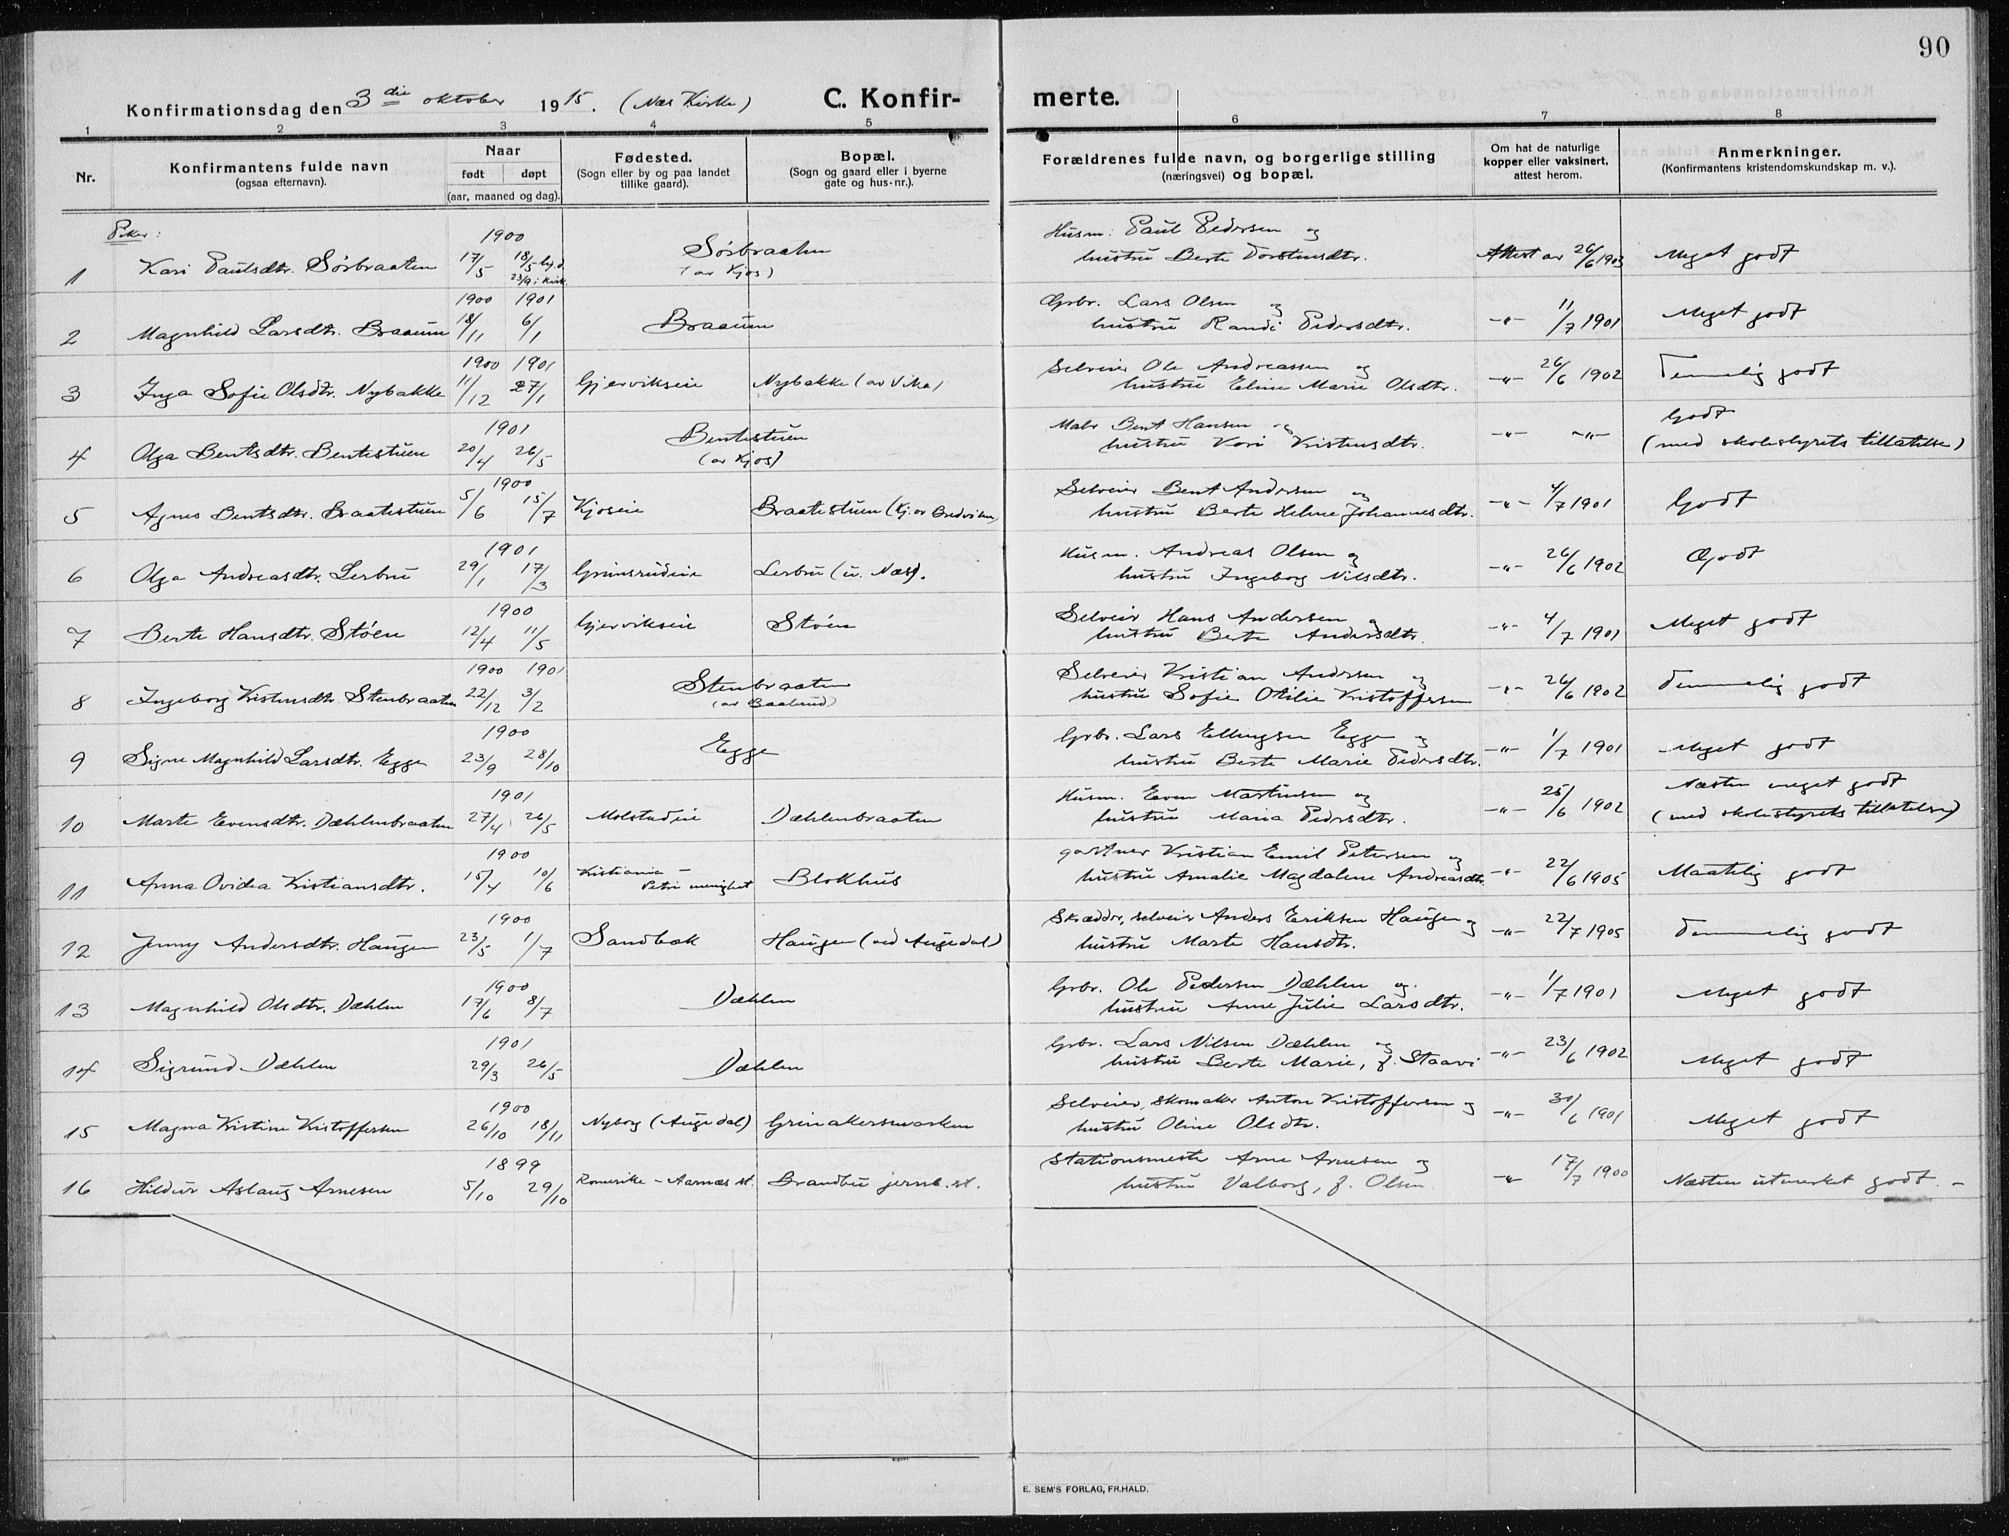 90
Konfirmationsdag den 3die oktober 1915. (Næs Kirke) C. Konfir- merte.
1 2 3 4 5 6 7 8
Nr. Konfirmantens fulde navn (ogsaa efternavn). Naar født døpt (aar, maaned og dag). Fødested. (Sogn eller by og paa landet tillike gaard). Bopæl. (Sogn og gaard eller i byerne gate og hus-nr.). Forældrenes fulde navn, og borgerlige stilling (næringsvei) og bopæl. Om hat de naturlige kopper eller vaksinert, attest herom. Anmerkninger. (Konfirmantens kristendomskundskap m. v.).
Piker:
1 Kari Paulsdtr. Sørbraaten 1900 17/5 18/5 hj.d. 23/9 i kirk. Sørbraaten (av Kjos) Husm. Paul Pedersen og hustru Berte Torstensdtr. Attest av 26/6 1903 Meget godt
2 Magnhild Larsdtr. Braaum 1900 18/11 1901 6/1 Braaum Grbr. Lars Olsen og hustru Randi Pedersdtr. -"- 11/7 1901 Meget godt
3 Inga Sofie Olsdtr. Nybakke 1900 11/12 1901 27/1 Gjervikseie Nybakke (av Vika) Selveier Ole Andreassen og hustru Eline Marie Olsdtr. -"- 26/6 1902 Temmelig godt
4 Olga Bentsdtr. Bentestuen 1901 20/4 26/5 Bentestuen (av Kjos) Maler Bent Hansen og hustru Kari Kristensdtr. -"- -"- Godt (med skolestyrets tillatelse)
5 Agnes Bentsdtr. Braatestuen 1900 5/6 15/7 Kjoseie Braatestuen (Kj. av Bredviken) Selveier Bent Andersen og hustru Berte Helene Johannesdtr. -"- 4/7 1901 Godt
6 Olga Andreasdtr. Lerbru 1901 29/1 17/3 Grinsrudeie Lerbru (u. Næs). Husm. Andreas Olsen og hustru Ingeborg Nilsdtr. -"- 26/6 1902 Godt
7 Berte Hansdtr. Støen 1900 12/4 11/5 Gjervikseie Støen Selveier Hans Andersen og hustru Berte Andersdtr. -"- 4/7 1901 Meget godt
8 Ingeborg Kristensdtr. Stenbraaten 1900 22/12 1901 3/2 Stenbraaten (av Baalerud) Selveier Kristian Andersen og hustru Sofie Otilie Kristoffersen -"- 26/6 1902 Temmelig godt
9 Signe Magnhild Larsdtr. Egge 1900 23/9 28/10 Egge Grbr. Lars Ellingsen Egge og hustru Berte Marie Pedersdtr. -"- 1/7 1901 Meget godt
10 Marte Evensdtr. Dæhlenbraaten 1901 27/4 26/5 Molstadeie Dæhlenbraaten Husm. Even Martinsen og hustru Maria Pedersdtr. -"- 25/6 1902 Næsten meget godt (med skolestyrets tillatelse)
11 Anna Ovidia Kristiansdtr. 1900 15/4 10/6 Kristiania - Petri menighet Blokhus Gartner Kristian Emil Petersen og hustru Amalie Magdalene Andreasdtr. -"- 22/6 1905 Maatelig godt
12 Jenny Andersdtr. Haugen 1900 23/5 1/7 Sandbæk Haugen (ved Augedal) Skrædder, selveier Anders Eriksen Haugen og hustru Marte Hansdtr. -"- 22/7 1905 Temmelig godt
13 Magnhild Olsdtr. Dæhlen 1900 17/6 8/7 Dæhlen Grbr. Ole Pedersen Dæhlen og hustru Anne Julie Larsdtr. -"- 1/7 1901 Meget godt
14 Sigrund Dæhlen 1901 29/3 26/5 Dæhlen Grbr. Lars Nilsen Dæhlen og hustru Berte Marie, f. Staavi -"- 23/6 1902 Meget godt
15 Magna Kristine Kristoffersen 1900 26/10 18/11 Nyborg (Augedal) Grinakersmarken Selveier, skomaker Anton Kristoffersen og hustru Oline Olsdtr. -"- 30/6 1901 Meget godt
16 Hildur Aslaug Arnesen 1899 5/10 29/10 Romerike - Aarnæs st. Brandbu jernb. st. Stationsmester Arne Arnesen og hustru Valborg, f. Olsen -"- 17/7 1900 Næsten utmerket godt. -
E. SEM'S FORLAG, FR.HALD.